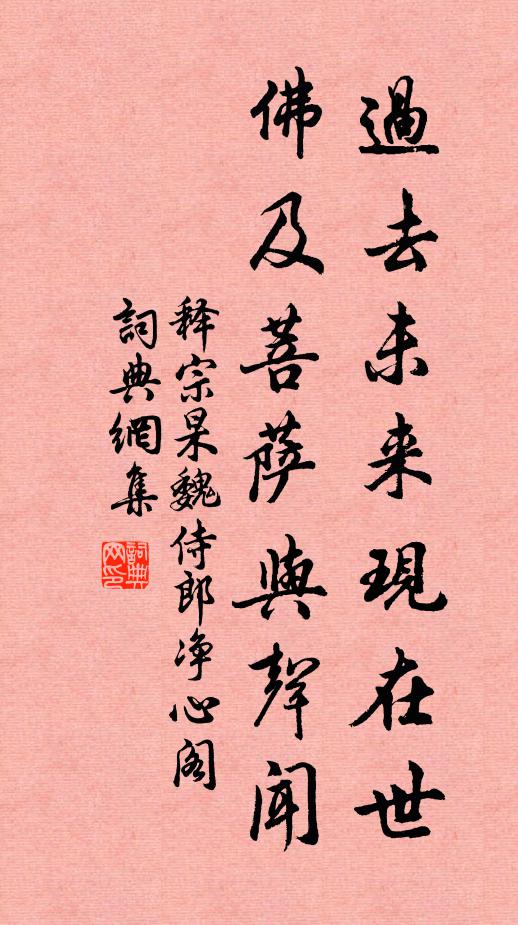 過去未来現在世
佛及菩薩與聲聞
释宗杲魏侍郎净心阁
詞典網集
詞典网印